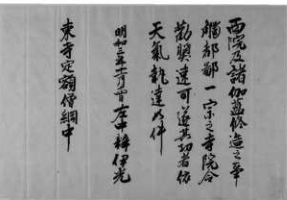 西院及諸伽藍修造之事
觸都鄙一宗之寺院合
勸奬速可遂其功者依
天氣執達如件
明和三年十一月廿日左中辨伊光
東寺定額僧綱中